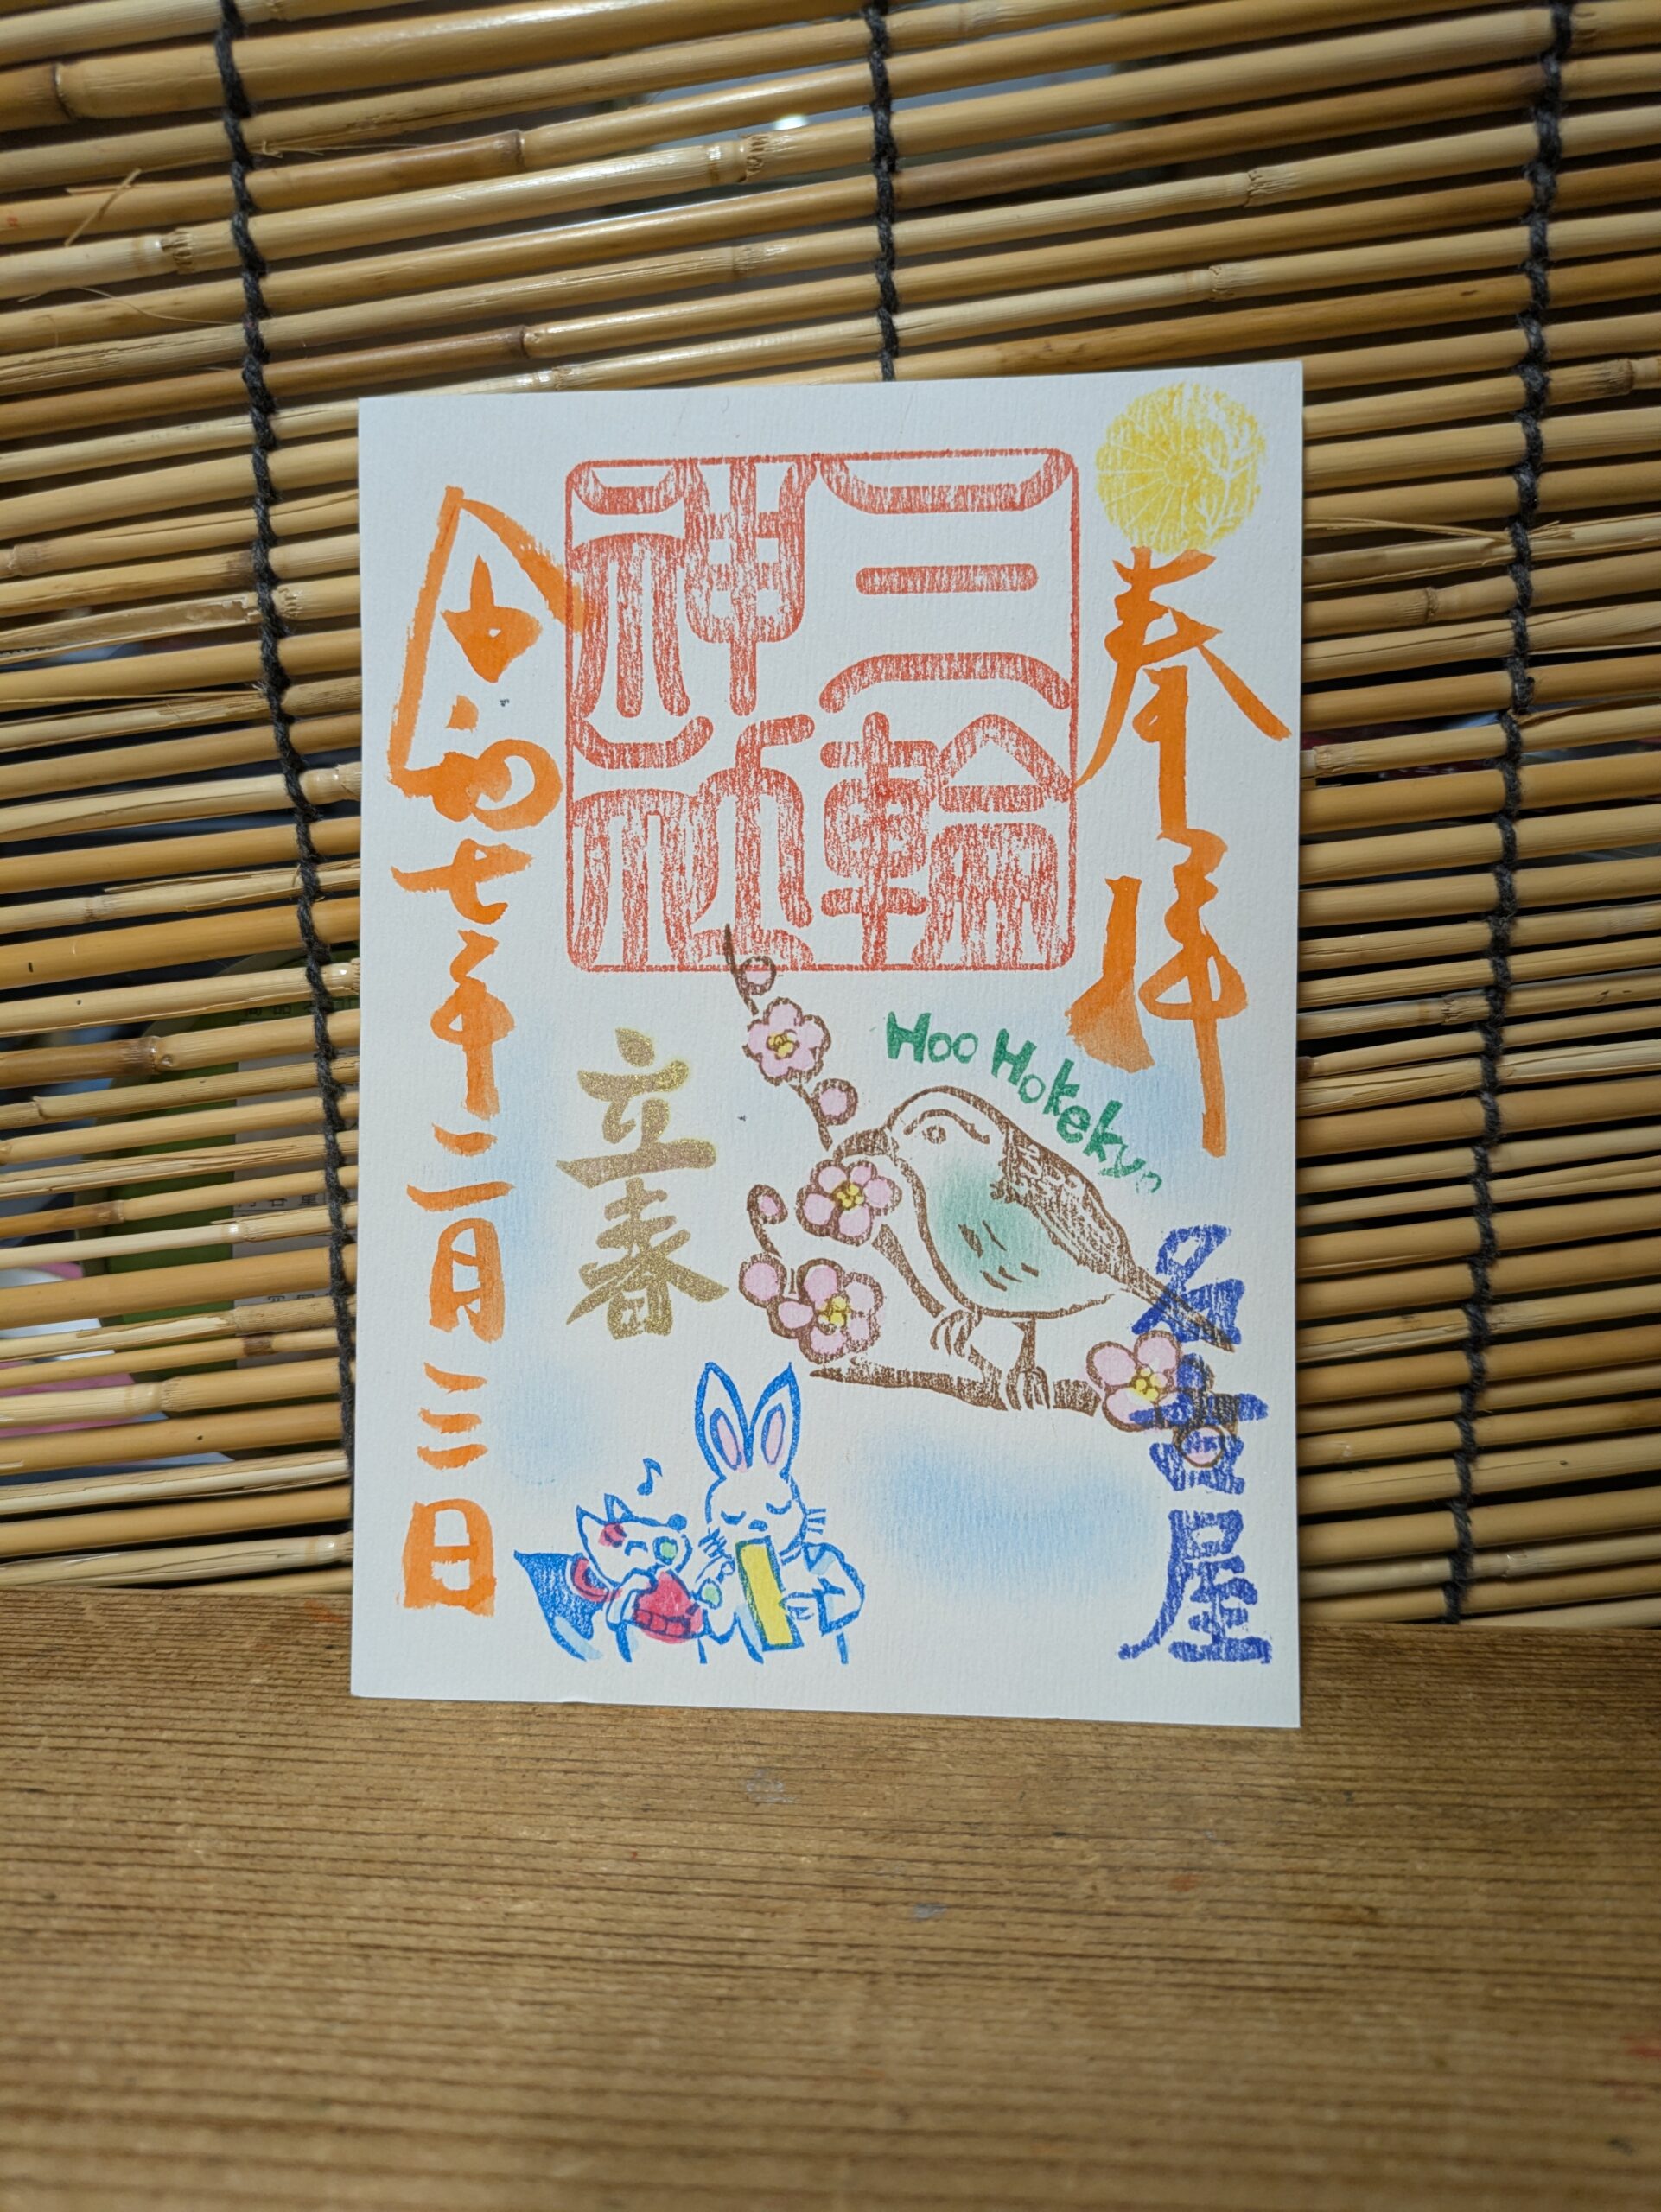 奉拝
名古屋
三輪
神社
Hoo Hokekyo
立春
令和七年二月三日